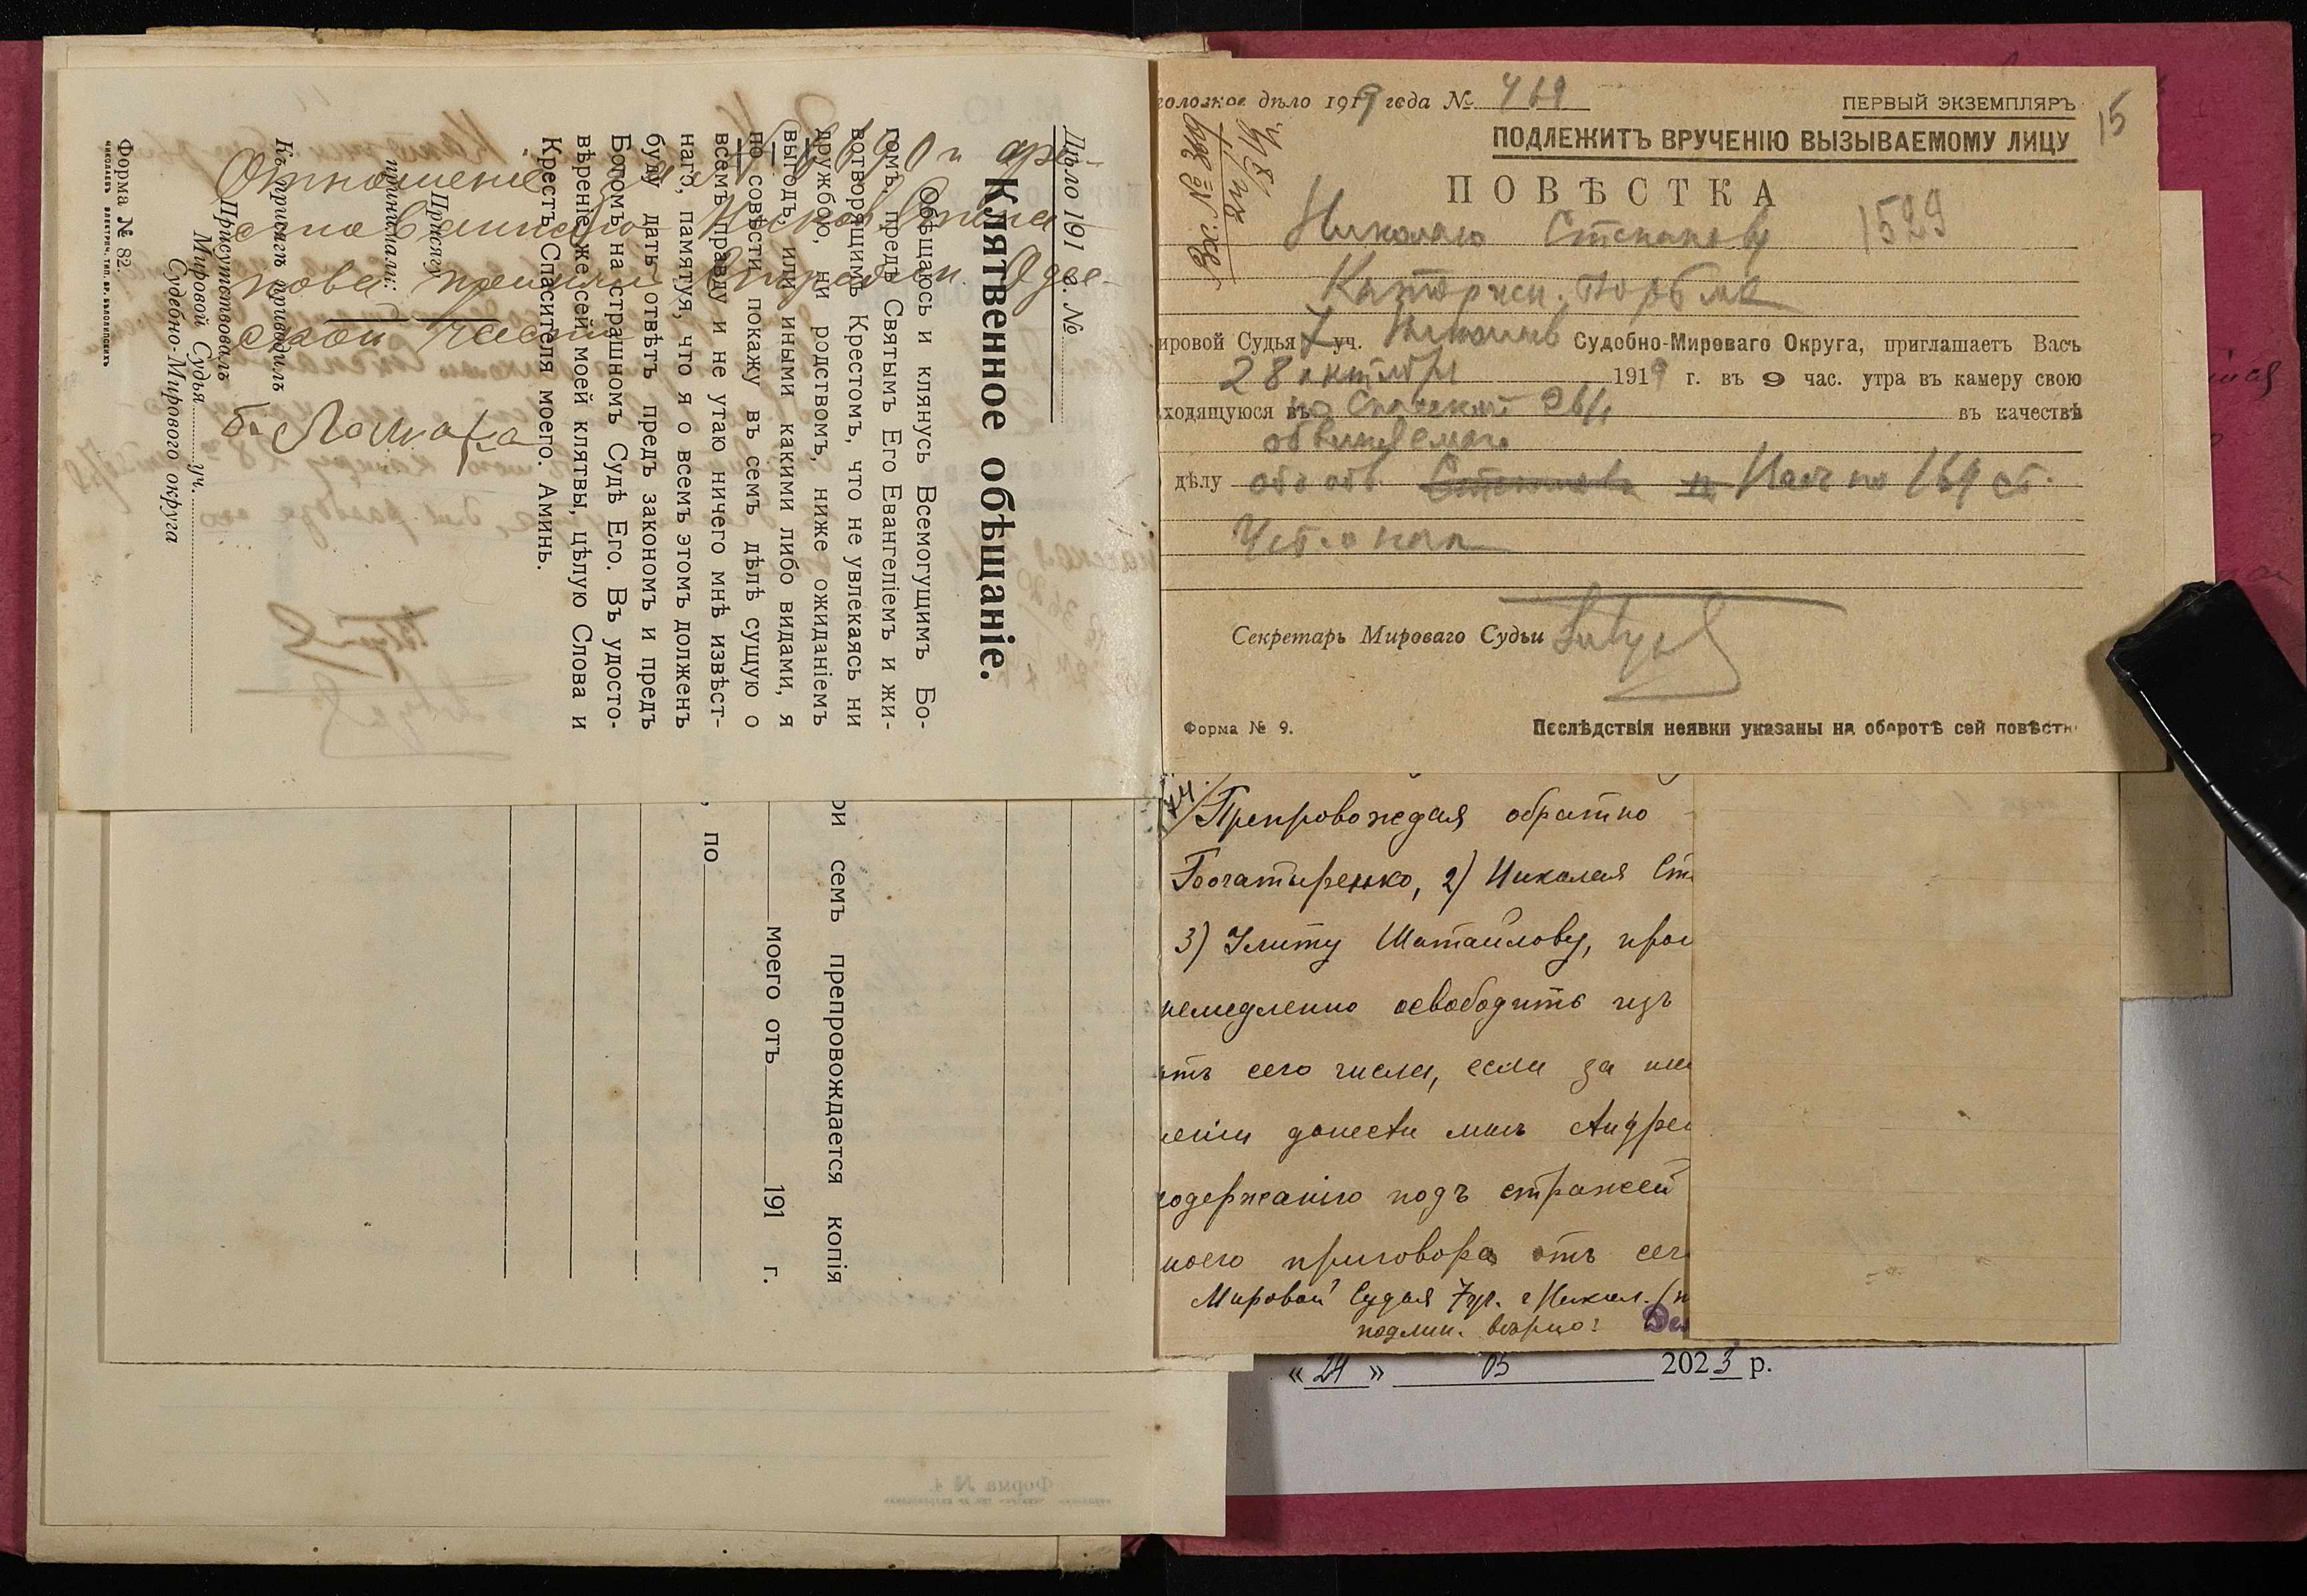 Дѣло 191 г. №
Клятвенное обѣщаніе.
Обѣщаюсь и клянусь Всемогущимъ Бо-
гомъ, предъ Святымъ Его Евангеліемъ и жи-
вотворящимъ Крестомъ, что не увлекаясь ни
дружбою, ни родствомъ, ниже ожиданіемъ
выгодъ, или иными какими либо видами, я
по совѣсти покажу въ семъ дѣлѣ сущую о
всемъ правду и не утаю ничего мнѣ извѣст-
наго, памятуя, что я о всемъ этомъ долженъ
буду дать отвѣтъ предъ закономъ и предъ
Богомъ на страшномъ Судѣ Его. Въ удосто-
вѣреніе же сей моей клятвы, цѣлую Слова и
Крестъ Спасителя моего. Аминь.
Присягу
принимали:
Къ присягѣ приводилъ
Присутствовалъ
Мировой Судья уч.
Судебно-Мирового округа
Форма № 82.
Отношеніе за № 1690 и аре-
стованнаго Никол. Степа
нова принялъ Одес-
ской части
ри семъ препровождается копія
моего отъ 191 г.
, по
Форма № 4.
головное дѣло 1919 года № 469
ПЕРВЫЙ ЭКЗЕМПЛЯРЪ
15
ПОДЛЕЖИТЪ ВРУЧЕНІЮ ВЫЗЫВАЕМОМУ ЛИЦУ
ПОВѢСТКА
Николаю Степанову 1529
Каторжн. Тюрьма
ировой Судья 7 уч. Никол. Судобно-Мироваго Округа, приглашаетъ Васъ
28 октября 1919 г. въ 9 час. утра въ камеру свою
ходящуюся въ по Спасской 26/1 въ качествѣ
обвиняемаго
дѣлу обв по 169 ст.
Уст. о нак
Секретарь Мироваго Судьи
Форма № 9.
Пєслѣдствія неявки указаны на оборотѣ сей повѣстк
Препровождая обратно
Богатыренко, 2) Николая Ст
3) Улиту Шатайлову, про
немедленно освободить изъ
отъ сего числа, если за ни
неніи донести мнѣ Андре
содержанію подъ стражей
моего приговора отъ сег
Мировой Судья 7 уч. г Никол. (п
подлин. вѣрно:
« 24 » 05 2023 р.